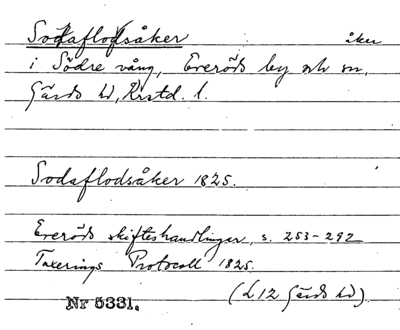 Sodaflodsåker åker
i Södre vång, Everöds by och sn,
Gärds hd, Krstd. l.
Sodaflodsåker 1825.
Everöds skifteshandlingar, s. 253-292
Taxerings Protocoll 1825.
(L 12 Gärds hd).
Nr 5331.